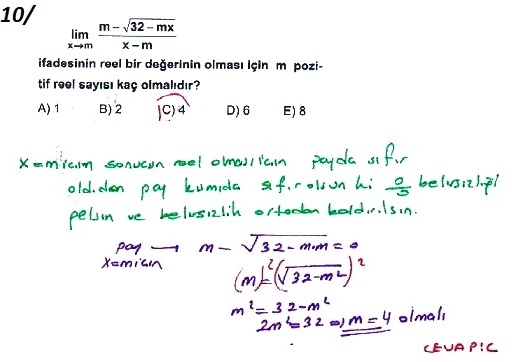 10/
lim x→m m – √32 – mx / x – m
ifadesinin reel bir değerinin olması için m pozi-
tif reel sayısı kaç olmalıdır?
A) 1 B) 2 C) 4 D) 6 E) 8
x=m için sonucun reel olması için payda sıfır
olduğundan pay kısmıda sıfır olsun ki 0/0 belirsizliği
gelsin ve belirsizlik ortadan kaldırılsın.
pay → m – √32 – m.m = 0
x=m için
(m)² = (√32 – m²)²
m² = 32 – m²
2m² = 32 ⇒ m = 4 olmalı
CEVAP: C